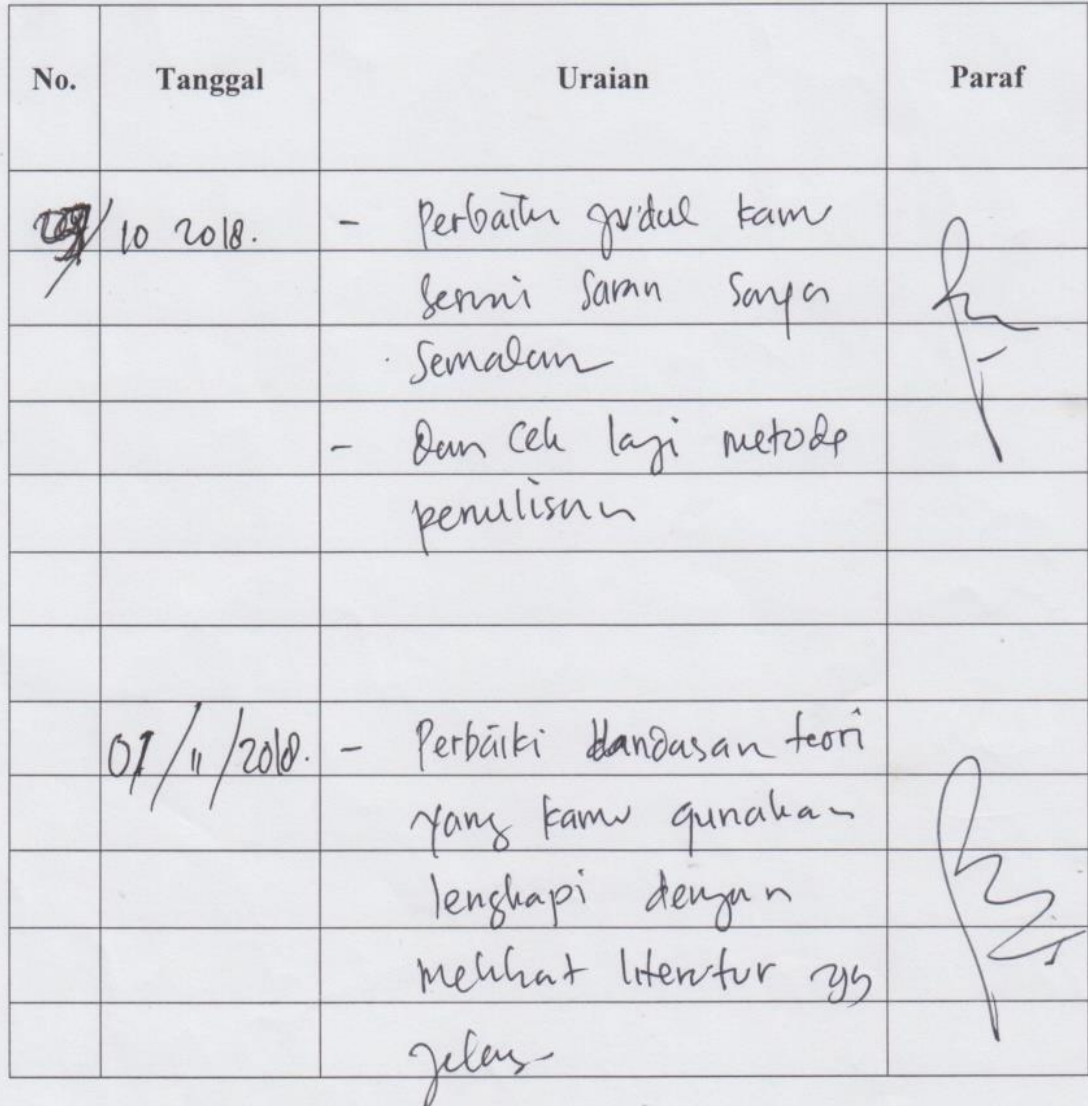 No. Tanggal Uraian Paraf
/ 10 2018. - Perbaiki judul kamu
sesuai saran saya
semalam
- Dan cek lagi metode
penulisan
01/11/2018. - Perbaiki landasan teori
yang kamu gunakan
lengkapi dengan
melihat literatur yg
jelas